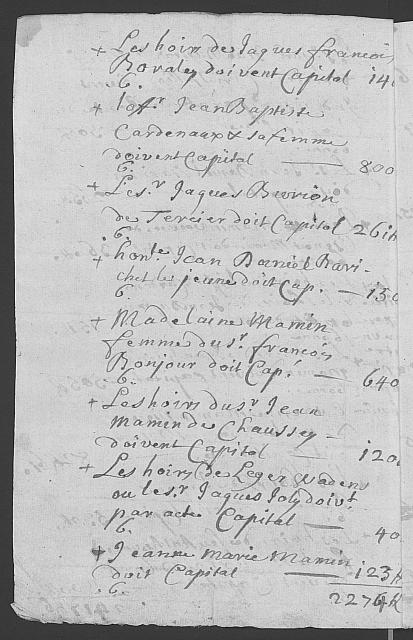 + Les hoirs de Jaques francois
Boraley doivent Capital 140
6.
+ laffr. Jean Baptiste
Cardenaux & sa femme
doivent Capital — 800
6.
+ Le sr. Jaques Burrion
de Tercier doit Capital 261 h
6.
+ honle. Jean Daniel Ravi-
chet le jeune doit Cap. — 150
6.
+ Madelaine Mamin
femme du sr. francois
Bonjour doit Cap. — 640
6.
+ Les hoirs du sr. Jean
Mamin de Chaussey -
doivent Capital 120
+ Les hoirs de Leger wadens
ou le sr. Jaques Joly doivt.
par acte Capital — 40
6.
+ Jeanne Marie Mamin
doit Capital — 123 h
6.
2276 h